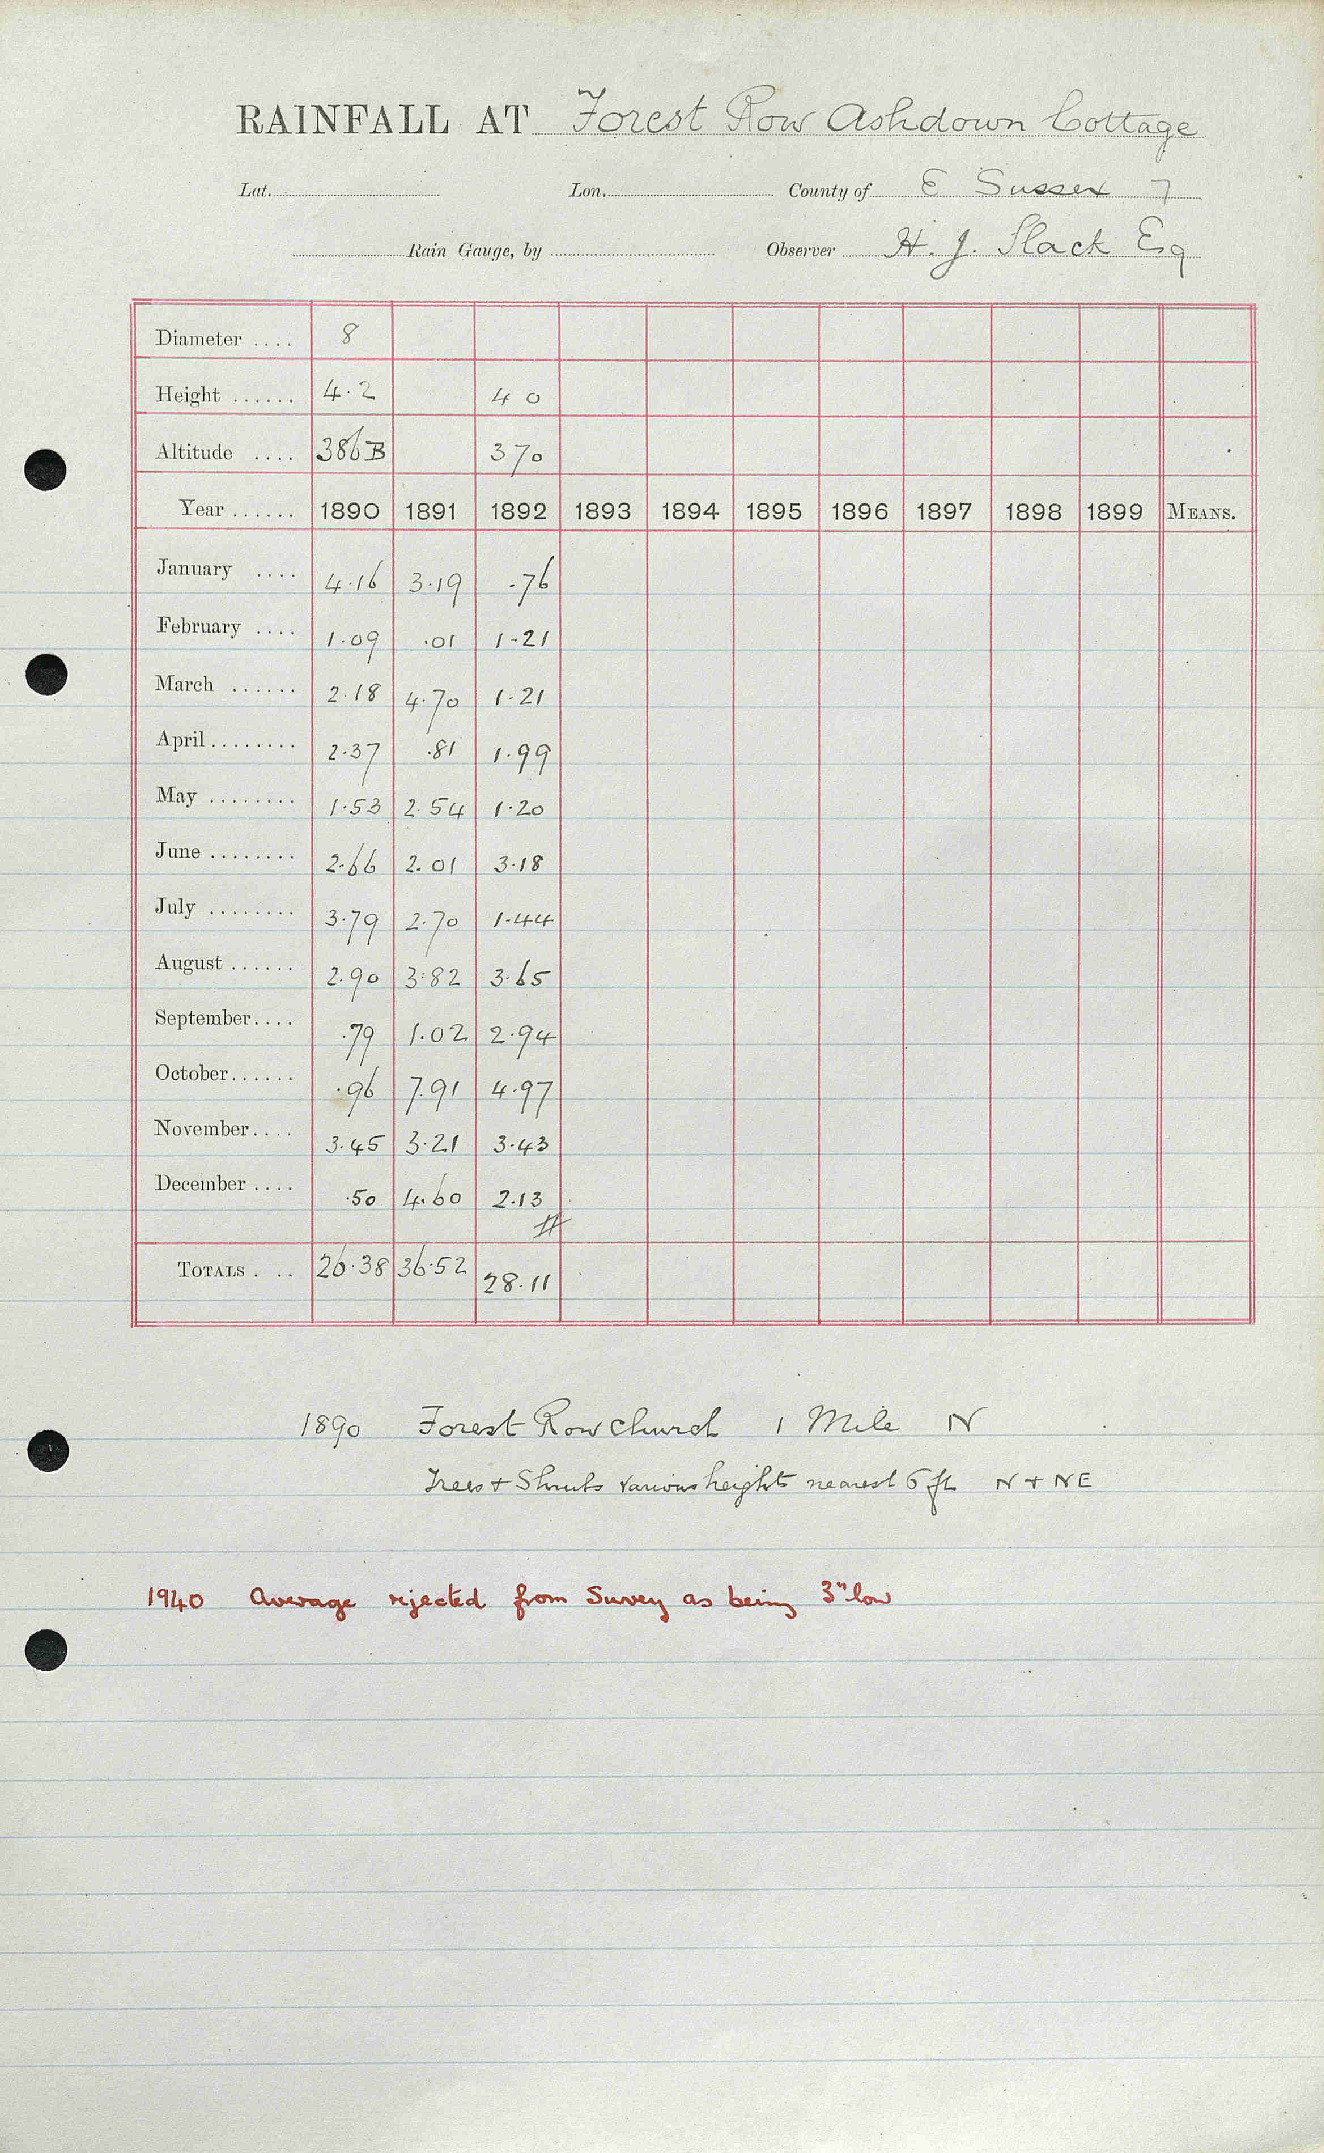 RAINFALL AT Forest Row Ashdown Cottage
Lat. Lon. County of E Sussex 7
Rain Gauge, by Observer H. J. Slack Esq
Diameter .... 8
Height ...... 4.2 4 0
Altitude .... 386 B 370
Year ...... 1890 1891 1892 1893 1894 1895 1896 1897 1898 1899 MEANS.
January .... 4.16 3.19 .76
February .... 1.09 .01 1.21
March ...... 2.18 4.70 1.21
April ........ 2.37 .81 1.99
May ........ 1.53 2.54 1.20
June ........ 2.66 2.01 3.18
July ........ 3.79 2.70 1.44
August ...... 2.90 3.82 3.65
September.... .79 1.02 2.94
October...... .96 7.91 4.97
November.... 3.45 3.21 3.43
December .... .50 4.60 2.13
#
TOTALS . .. 26.38 36.52 28.11
1890 Forest Row Church 1 Mile N
Trees + Shrubs various heights nearest 6 ft N + NE
1940 Average rejected from Survey as being 3" low